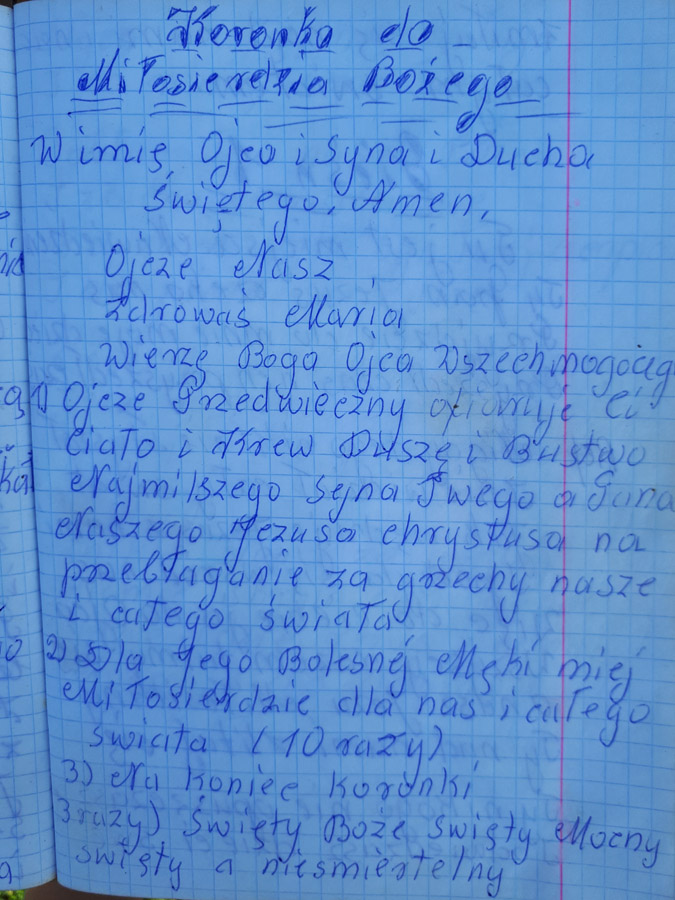 Koronka do
Miłosierdzia Bożego
W imię Ojca i Syna i Ducha
świętego. Amen.
Ojcze Nasz
Zdrowaś Maria
Wierzę Boga Ojca Wszechmogącg
1) Ojcze Przedwieczny ofiaruję Ci
Ciało i Krew Duszę i Bustwo
Najmilszego Syna Twego a Pana
Naszego Jezusa chrystusa na
przebłaganie za grzechy nasze
i całego świata
2) Dla Jego Bolesnej Męki miej
Miłosierdzie dla nas i całego
świata (10 razy)
3) Na koniec koronki
3 razy) Święty Boże święty Mocny
święty a nieśmiertelny